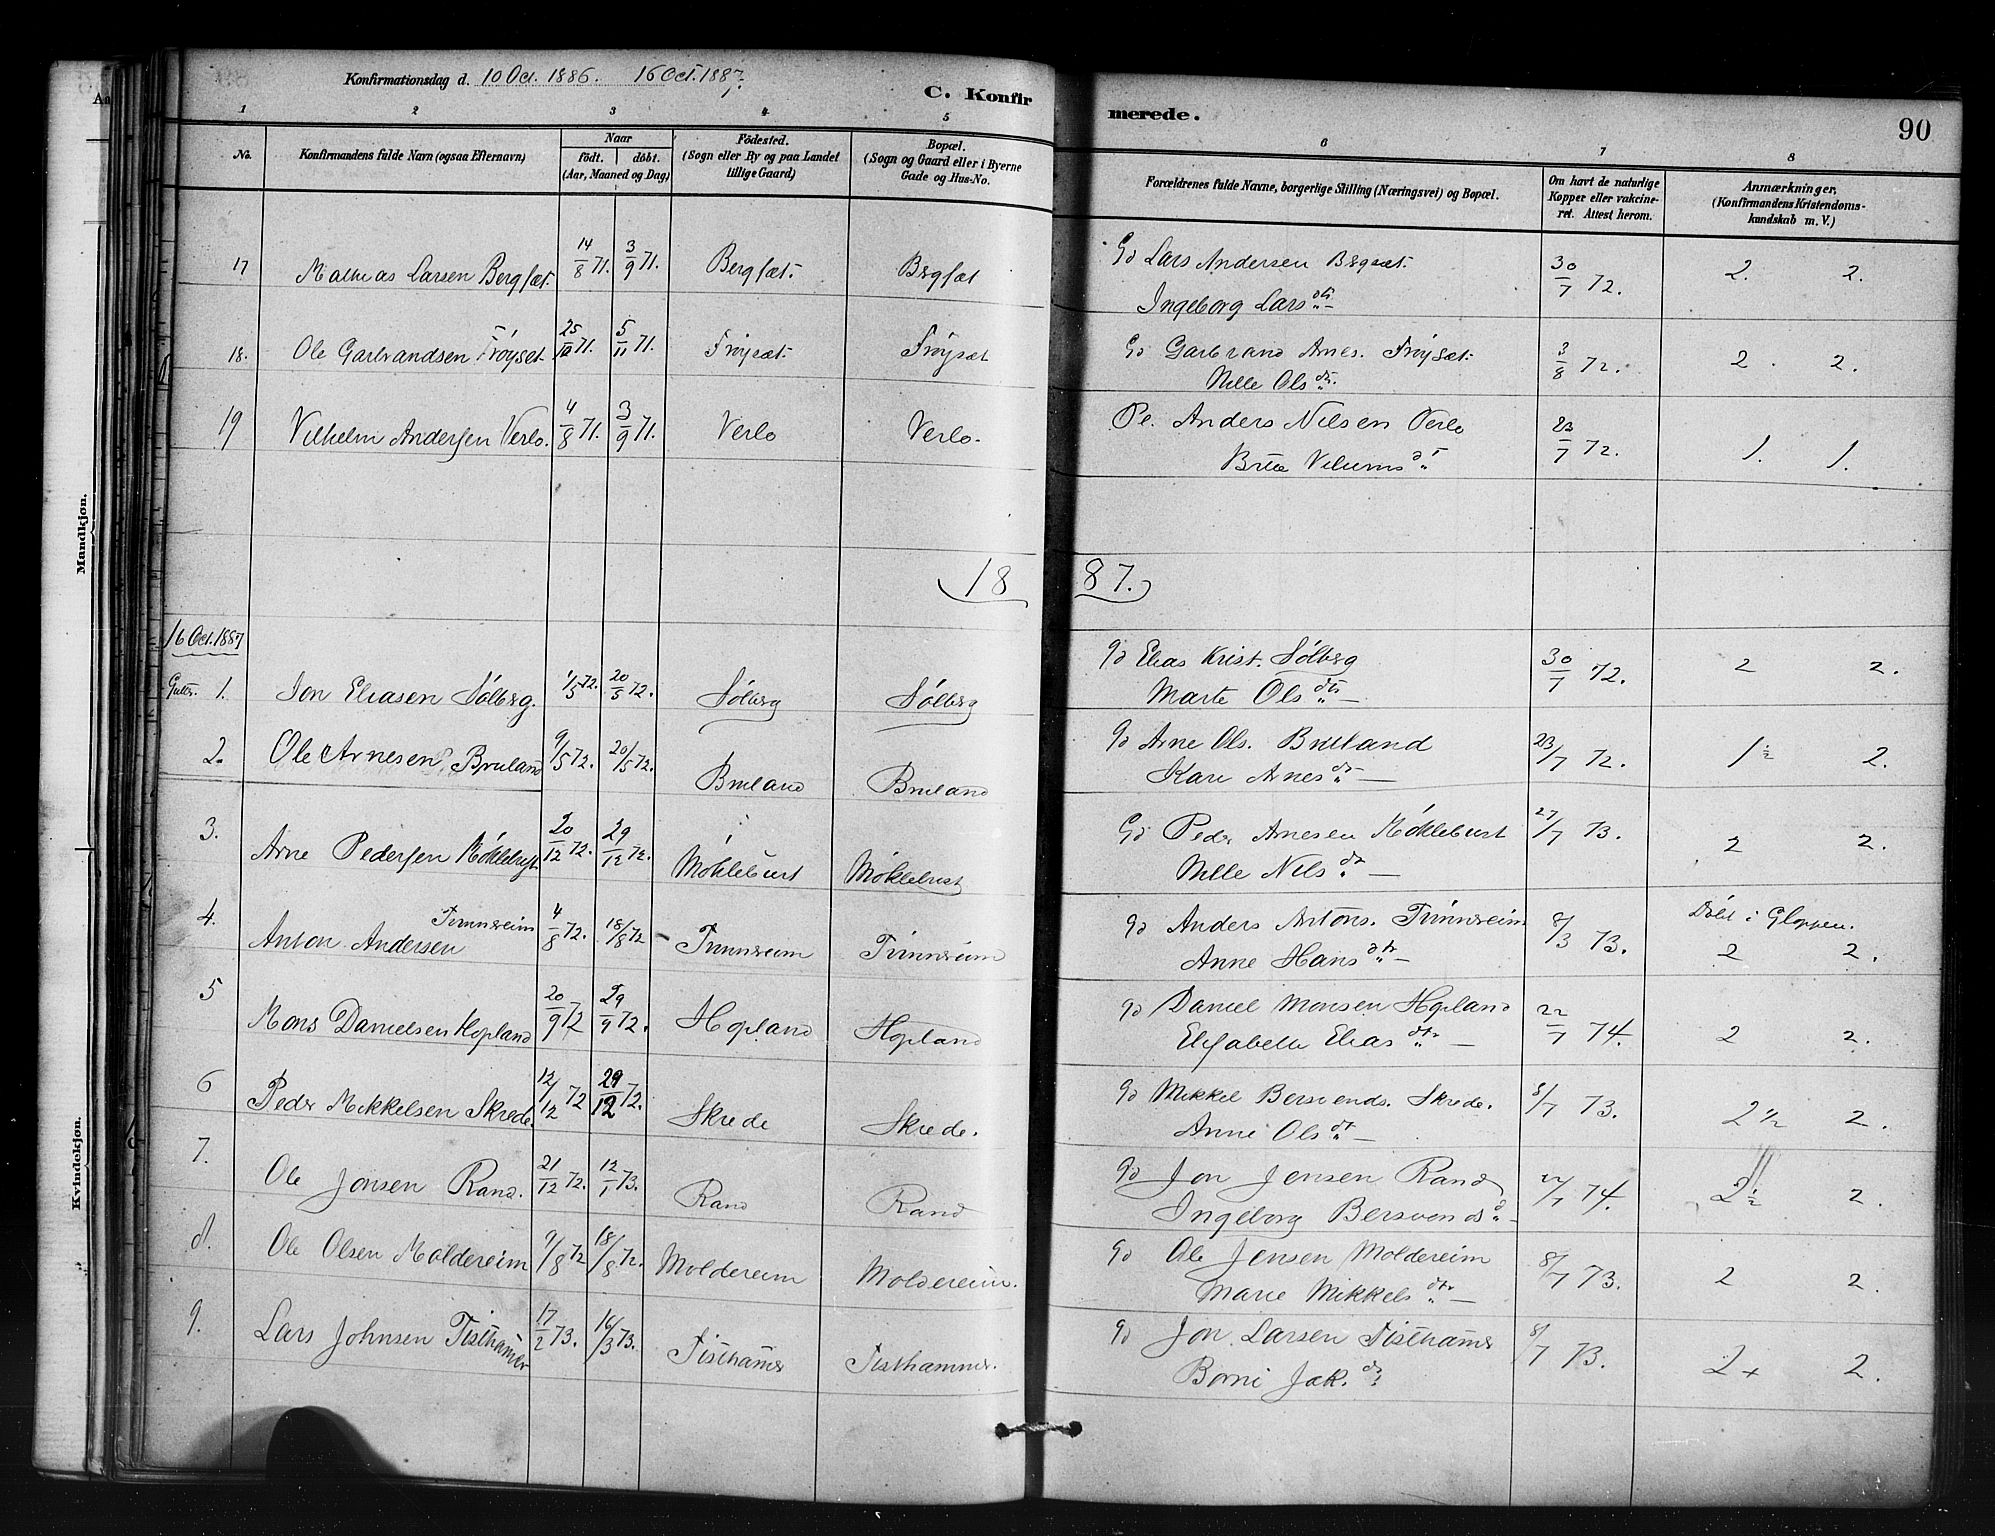 Konfirmationsdag d. 10 Oct. 1886. 16 Oct. 1887.
C. Konfirmerede.
90
1 2 3 4 5 6 7 8
No.
Konfirmandens fulde Navn (ogsaa Efternavn)
Naar
födt. döbt.
(Aar, Maaned og Dag)
Födested.
(Sogn eller By og paa Landet
tillige Gaard)
Bopæl.
(Sogn og Gaard eller i Byerne
Gade og Hus-No.
Forældrenes fulde Navne, borgerlige Stilling (Næringsvei) og Bopæl.
Om havt de naturlige
Kopper eller vakcine-
ret. Attest herom.
Anmærkninger,
(Konfirmandens Kristendoms-
kundskab m. V.)
17 Mathias Larsen Bergset. 14/8 71. 3/9 71. Bergsæt. Bergsæt Gd Lars Andersen Bergsæt. 30/7 72. 2. 2.
Ingeborg Larsdtr
18. Ole Garbrandsen Fröyset 25/10 71. 5/11 71. Fröysæt. Fröysæt Gd Garbrand Arnes. Fröysæt. 3/8 72. 2. 2.
Nille Olsdtr.
19 Vilhelm Andersen Verlo. 4/8 71. 3/9 71. Verlo Verlo. Pl. Anders Nilsen Verlo 23/7 72. 1. 1.
1887.
16 Oct. 1887
Gutter. 1. Jon Eliasen Sölberg. 1/5 72. 20/5 72. Sölberg Sölberg Gd Elias Krist. Sölberg 30/7 72. 2 2.
Marte Olsdtr
2. Ole Arnesen Bruland 9/5 72. 20/5 72. Bruland Bruland Gd Arne Ols. Bruland 23/7 72. 1½ 2.
Kari Arnesdtr
3. Arne Pedersen Möklebust 20/12 72. 29/12 72. Möklebust Möklebust Gd Peder Arnesen Möklebust 27/7 73. 2 2.
Nille Nilsdtr
4. Anton Andersen Tunnreim 4/8 72. 18/8 72 Tunnreim Tunnreim Gd Anders Antons. Tunnreim 8/3 73. Döbt i Gloppen. 2 2.
Anne Hansdtr
5 Mons Danielsen Hopland 20/9 72 29/9 72. Hopland Hopland Gd Daniel Monsen Hopland 22/7 74. 2 2.
Elisabeth Eliasdtr
6 Peder Mikkelsen Skrede. 12/12 72 29/12 72. Skrede Skrede. Gd Mikkel Bersvends. Skrede. 8/7 73. 2½ 2.
Anne Olsdtr
7. Ole Jonsen Rand. 21/12 72. 12/1 73. Rand Rand Gd Jon Jensen Rand 22/7 74. 2½ 2.
Ingeborg Bersvendsd
8. Ole Olsen Moldereim 9/8 72 18/8 72. Moldereim Moldereim. Gd Ole Jensen Moldereim 8/7 73. 2 2.
Marie Mikkelsdtr
9. Lars Johnsen Tisthamer 17/2 73. 16/3 73. Tisthamer Tisthammer. Gd Jon Larsen Tisthamer 8/7 73. 2+ 2.
Jak.
Mandkjøn.
Kvindekjøn.